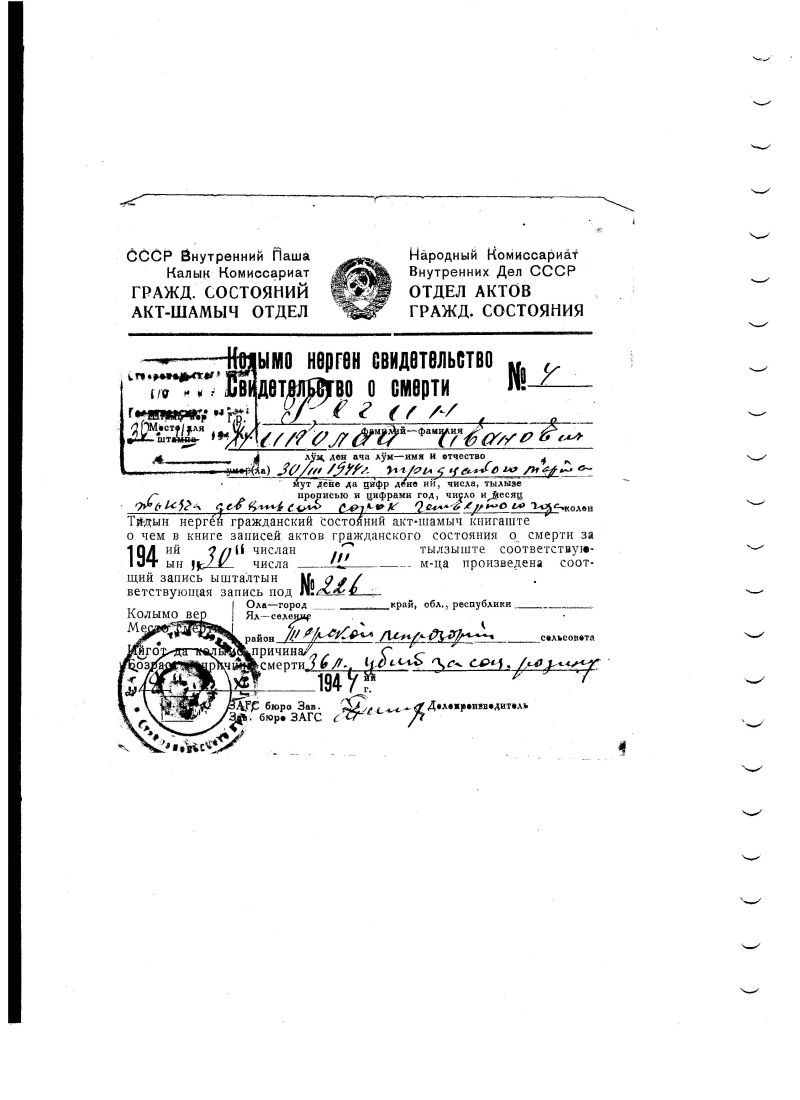 СССР Внутренний Паша
Калык Комиссариат
ГРАЖД. СОСТОЯНИЙ
АКТ-ШАМЫЧ ОТДЕЛ
Народный Комиссариат
Внутренних Дел СССР
ОТДЕЛ АКТОВ
ГРАЖД. СОСТОЯНИЯ
Колымо нерген свидетельство
Свидетельство о смерти
№ 4
Место для
штампа
Регин
фамилий—фамилия
Николай Иванович
лӱм ден ача лӱм—имя и отчество
умер(ла) 30/III 1944г. тридцатого марта
мут дене да цифр дене ий, числа, тылызе
прописью и цифрами год, число и месяц
тысяча девятьсот сорок четвертого года колен
Тидын нерген гражданский состояний акт-шамыч книгаште
о чем в книге записей актов гражданского состояния о смерти за
194 ий "30" числан III тылзыште соответствую-
ын числа м-ца произведена соот-
щий запись ышталтын
ветствующая запись под № 226
Колымо вер
Место смерти
Ола—город край, обл., республики
Ял—селение
район сельсовета
Ийгот да колымо причина
Возраст и причина смерти 36 л. убит за соц. родину
1944 ий
г.
ЗАГС бюро Зав.
Зав. бюро ЗАГС
Делопроизводитель